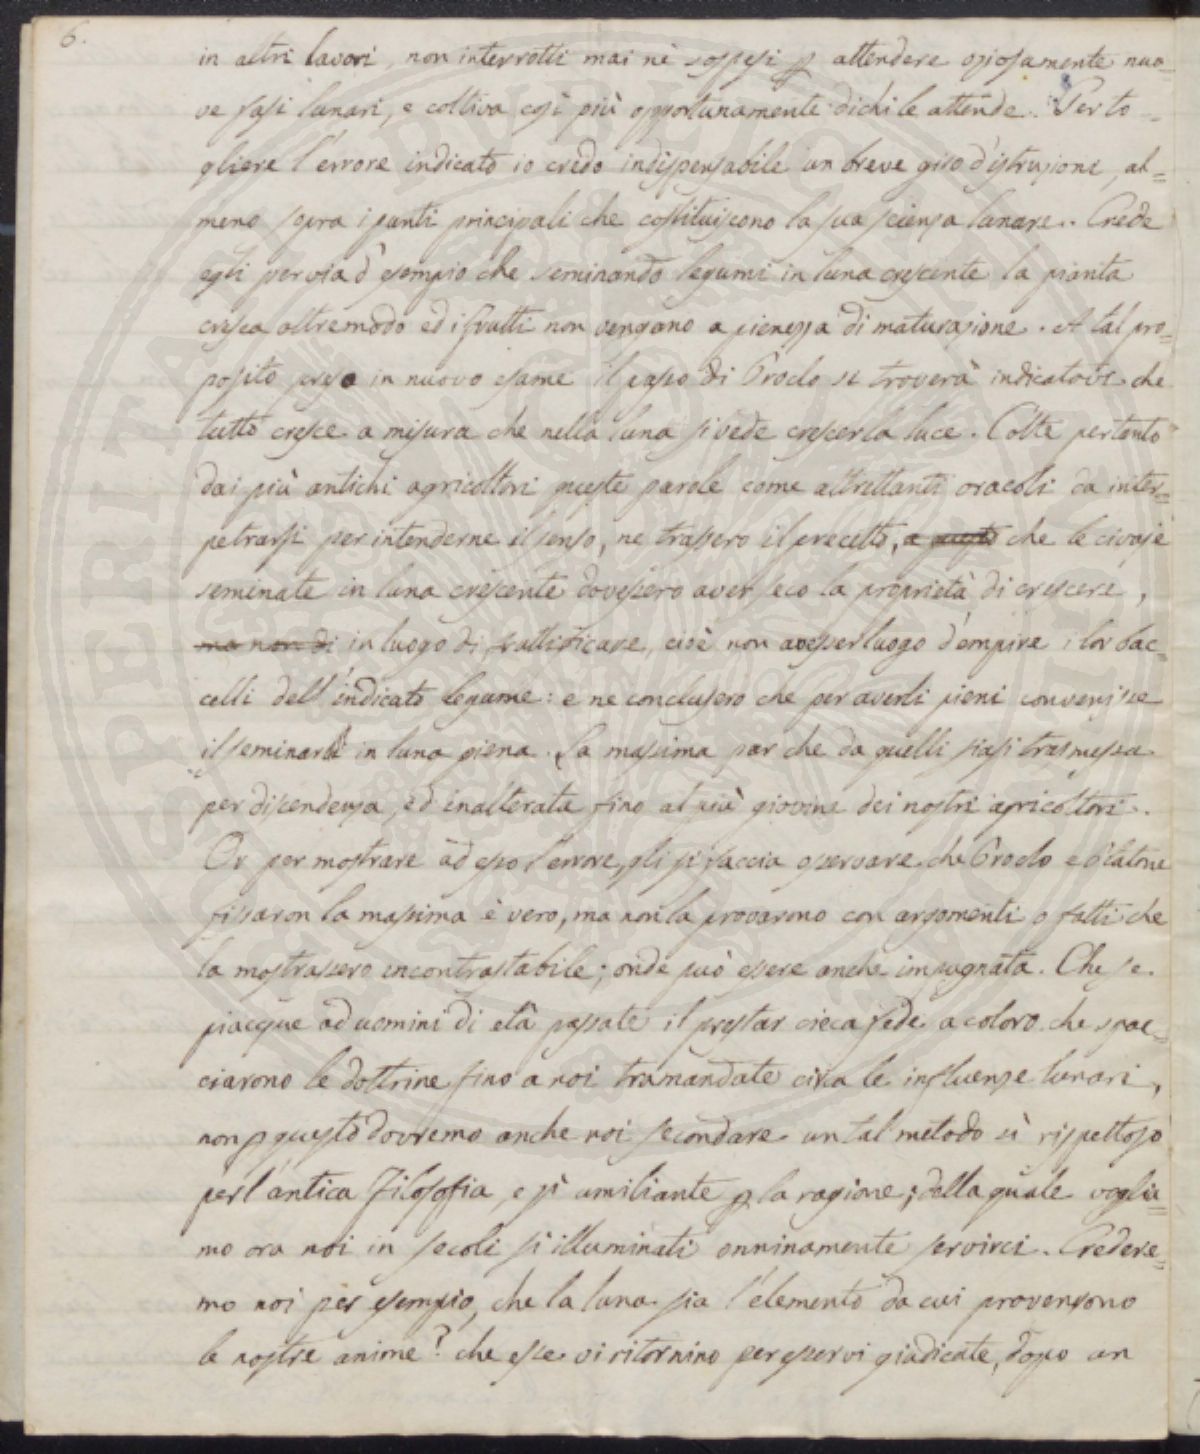 6.
in altri lavori, non interrotti mai nè sospesi p attendere oziosamente nuo-
ve fasi lunari, e coltiva così più opportunamente di chi le attende. Per to-
gliere l'errore indicato io credo indispensabile un breve giro d'istruzione, al=
meno sopra i punti principali che costituiscono la sua scienza lunare. Crede
egli per via d'esempio che seminando legumi in luna crescente la pianta
cresca oltremodo ed i frutti non vengano a pienezza di maturazione. A tal pro=
posito preso in nuovo esame il passo di Proclo si troverà indicatovi che
tutto cresce a misura che nella luna si vede crescer la luce. Colte pertanto
dai più antichi agricoltori queste parole come altrettanti oracoli da inter=
petrarsi per intenderne il senso, ne trassero il precetto, a questo che le civaje
seminate in luna crescente dovessero aver seco la proprietà di crescere,
ma non di in luogo di fruttificare, cioè non avesser luogo d'empire i lor bac=
celli dell'indicato legume: e ne conclusero che per averli pieni convenisse
il seminarli in luna piena. La massima par che da quelli siasi trasmessa
per discendenza, ed inalterata fino al più giovine dei nostri agricoltori.
Or per mostrare ad esso l'errore, gli si faccia osservare che Proclo e Platone
fissaron la massima è vero, ma non la provarono con argomenti o fatti che
la mostrassero incontrastabile; onde può essere anche impugnata. Che se
piacque ad uomini di età passate il prestar cieca fede a coloro che spac=
ciarono le dottrine fino a noi tramandate circa le influenze lunari,
non p questo dovremo anche noi secondare un tal metodo sì rispettoso
per l'antica Filosofia, e sì umiliante p la ragione; della quale voglia=
mo ora noi in secoli sì illuminati onninamente servirci. Credere=
mo noi per esempio, che la luna sia l'elemento da cui provengono
le nostre anime? che esse vi ritornino per esservi giudicate, dopo un